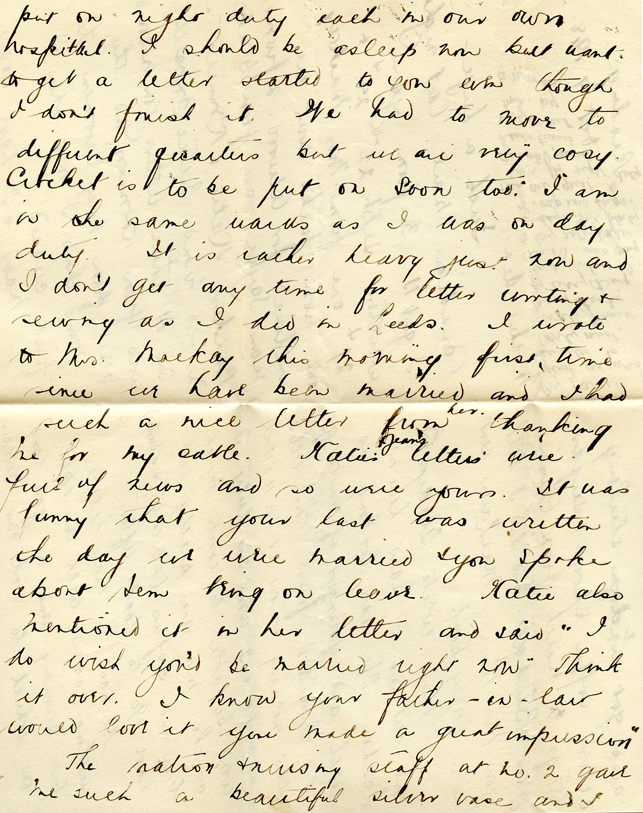 put on night duty each in our own
hospital. I should be asleep now but want
to get a letter started to you even though
I don't finish it. We had to move to
different quarters but we are very cosy.
Crocket is to be put on soon too. I am
in the same wards as I was on day
duty. It is rather heavy just now and
I don't get any time for letter writing &
sewing as I did in Leeds. I wrote
to Mrs. Mackay this morning first time
since we have been married and I had
such a nice letter from her thanking
me for my cable. Katie's Jean's letters were
full of news and so were yours. It was
funny that your last was written
the day we were married & you spoke
about Lem being on leave. Katie also
mentioned it in her letter and said "I
do wish you'd be married right now" Think
it over. I know your father-in-law
would love it you made a great impression"
The matron & nursing staff at no. 2 gave
me such a beautiful silver vase and I